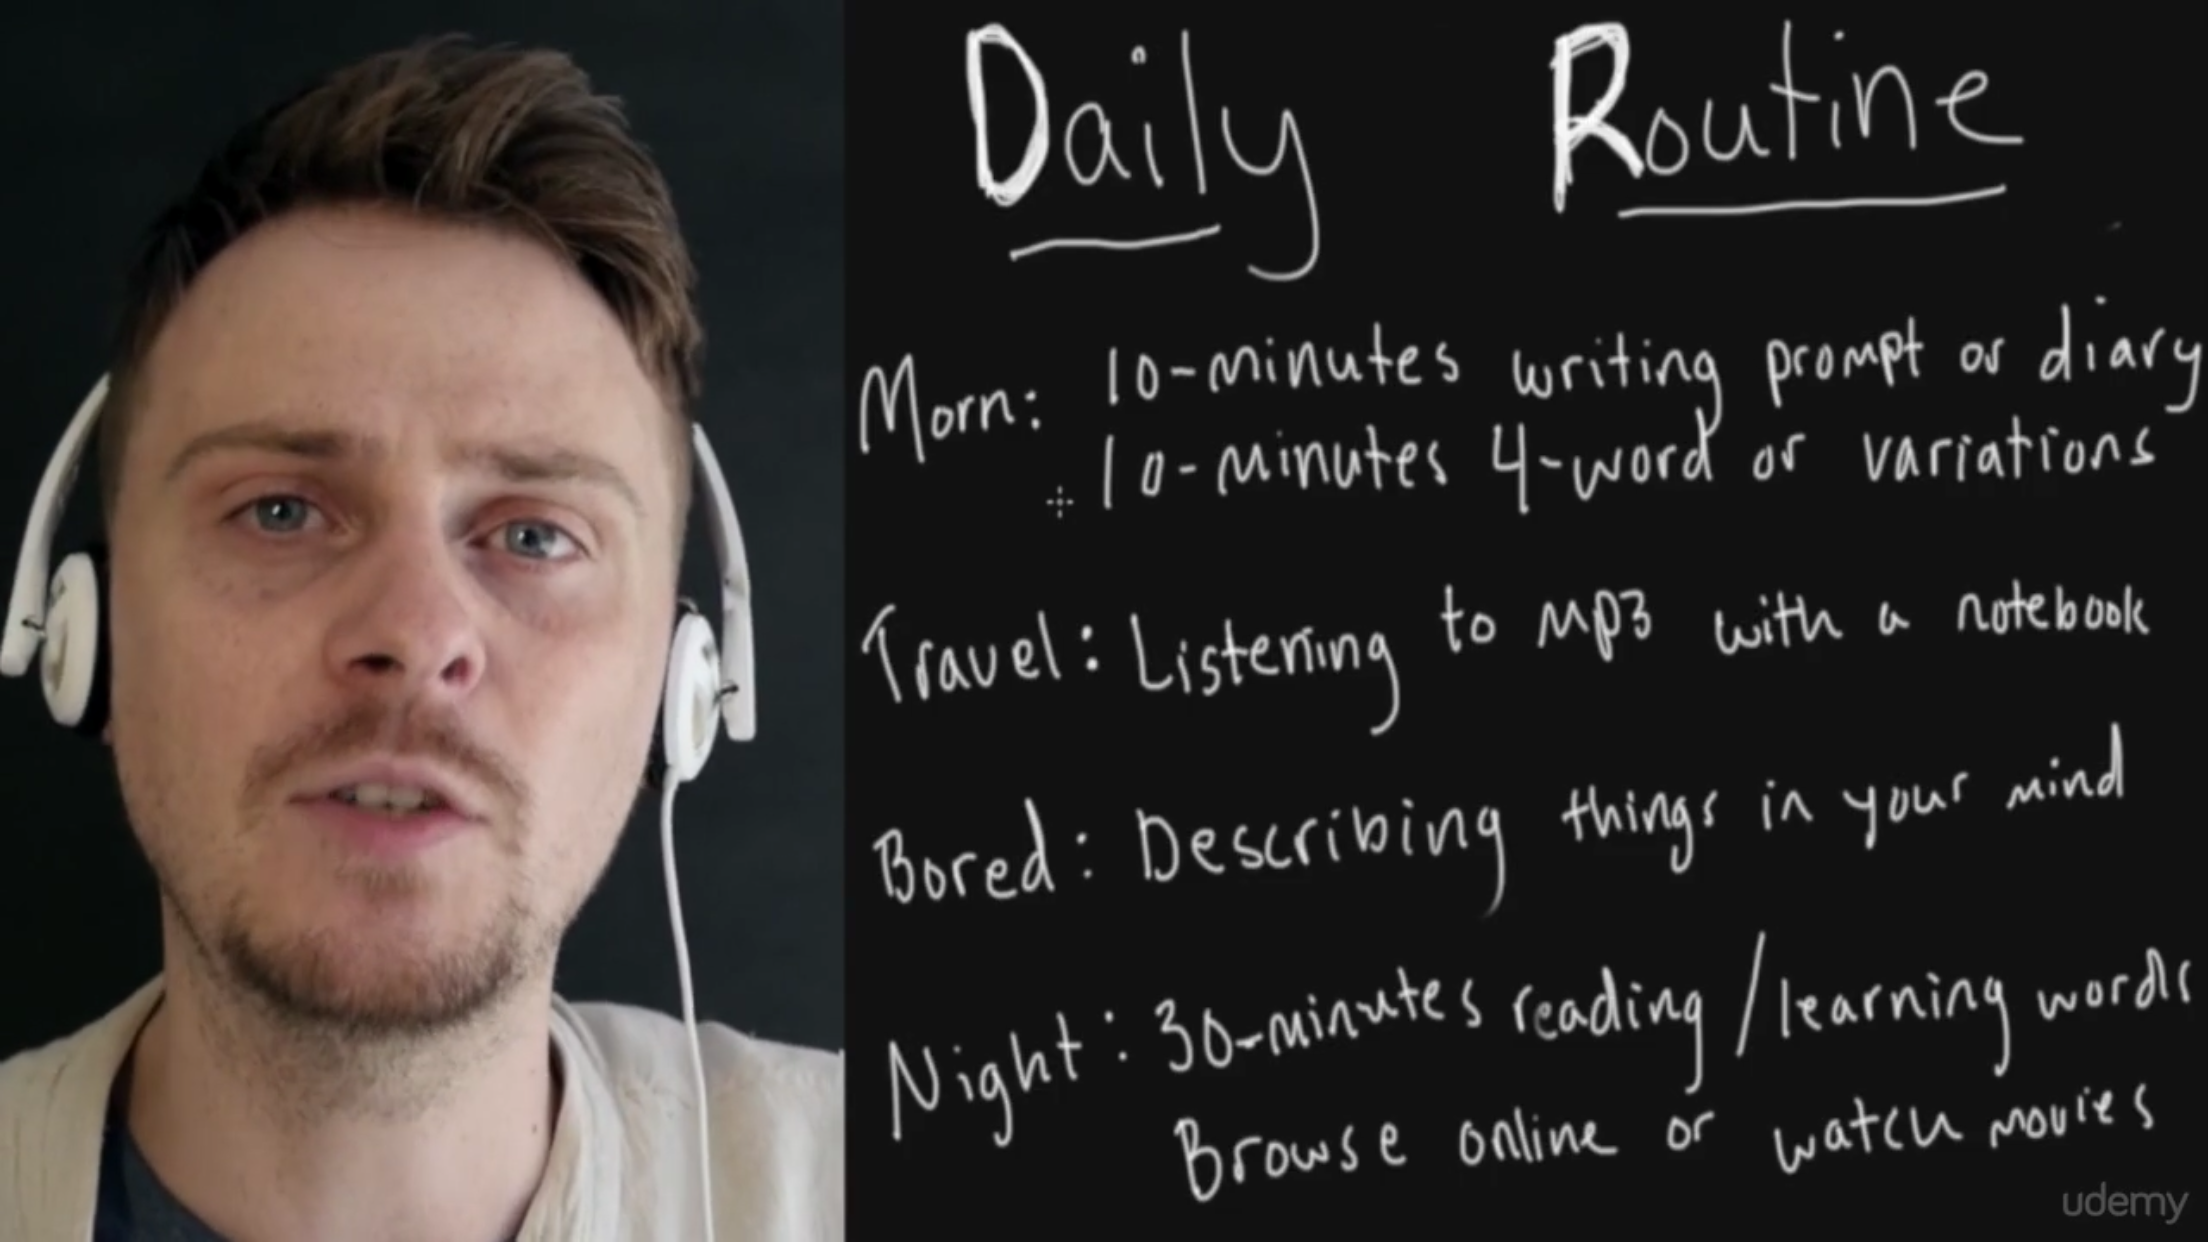 Daily Routine
Morn: 10-minutes writing prompt or diary
10-minutes 4-word or variations
Travel: Listening to mp3 with a notebook
Bored: Describing things in your mind
Night: 30-minutes reading/learning words
Browse online or watch movies
udemy